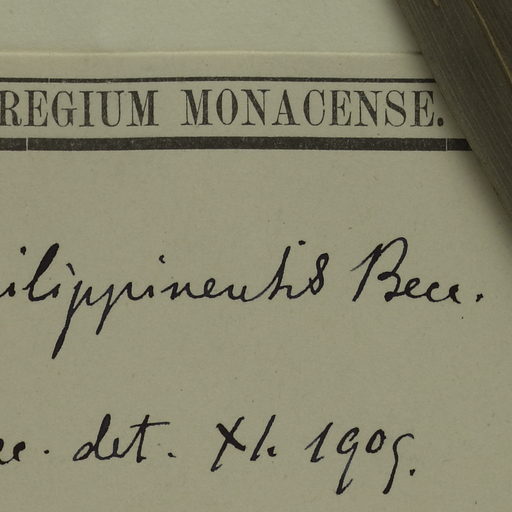 REGIUM MONACENSE.
ilippinensis Becc.
cc. det. XI. 1909.